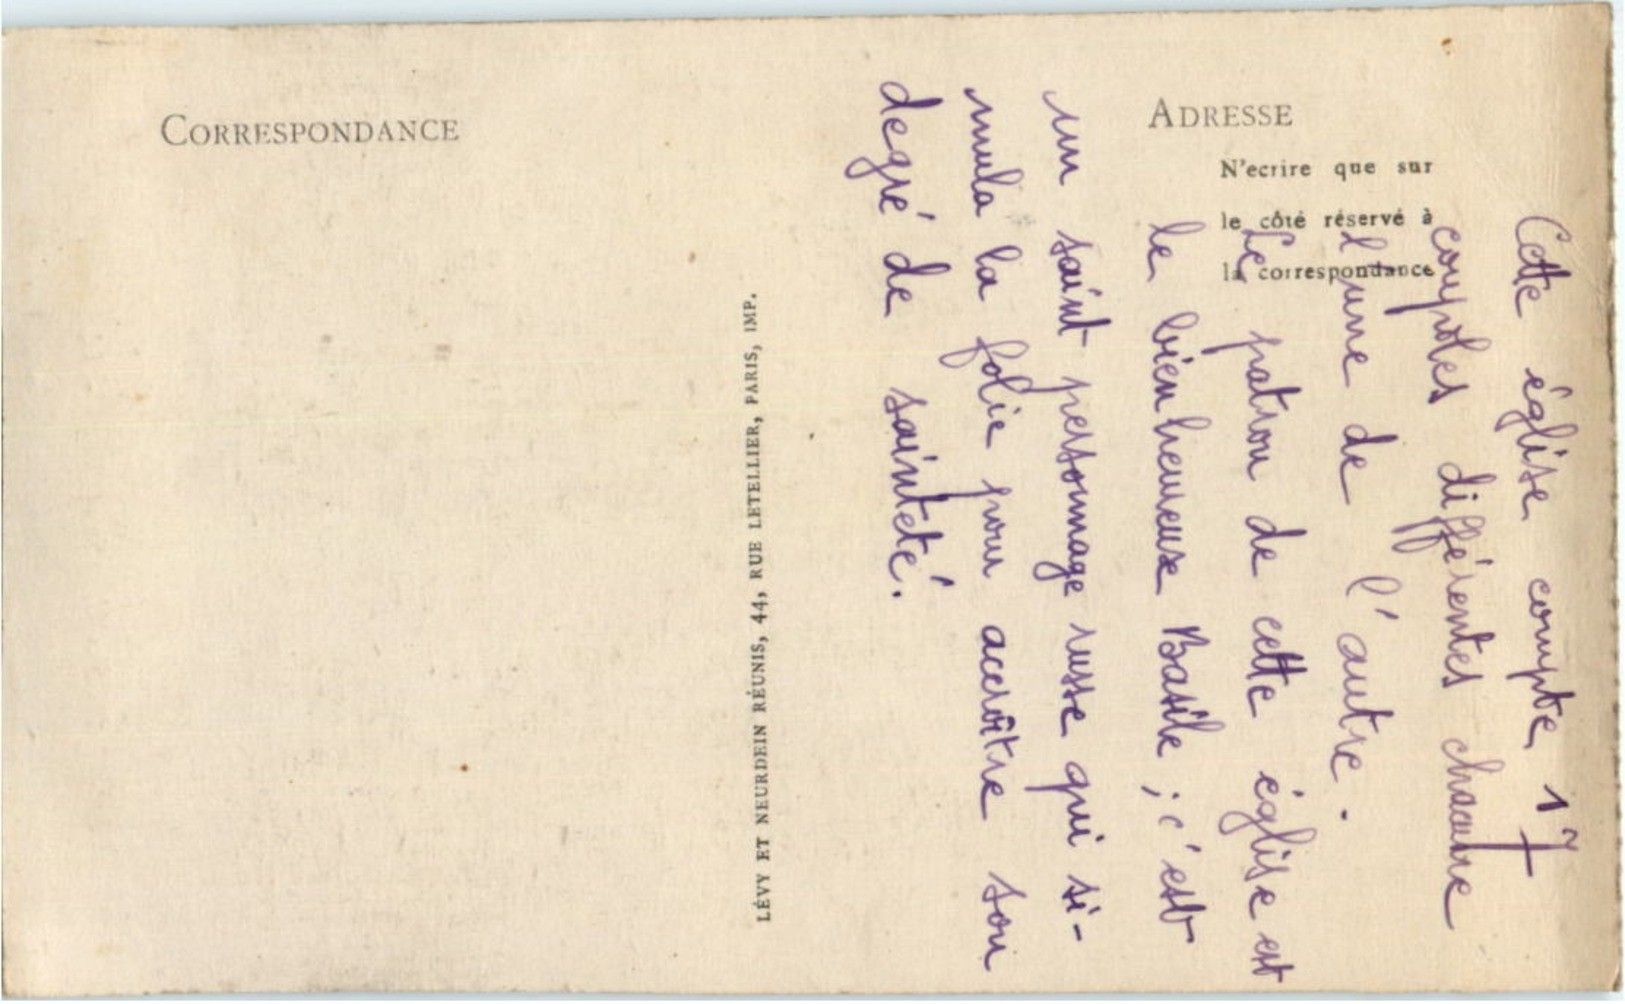 CORRESPONDANCE
ADRESSE
N'ecrire que sur
le côté réservé à
la correspondance
LÉVY ET NEURDEIN RÉUNIS, 44, RUE LETELLIER, PARIS, IMP.
Cette église compte 17
coupoles différentes chacune
l'une de l'autre.
Le patron de cette église est
le bienheureux Basile ; c'est
un saint personnage russe qui si-
mula la folie pour accroître son
degré de sainteté.